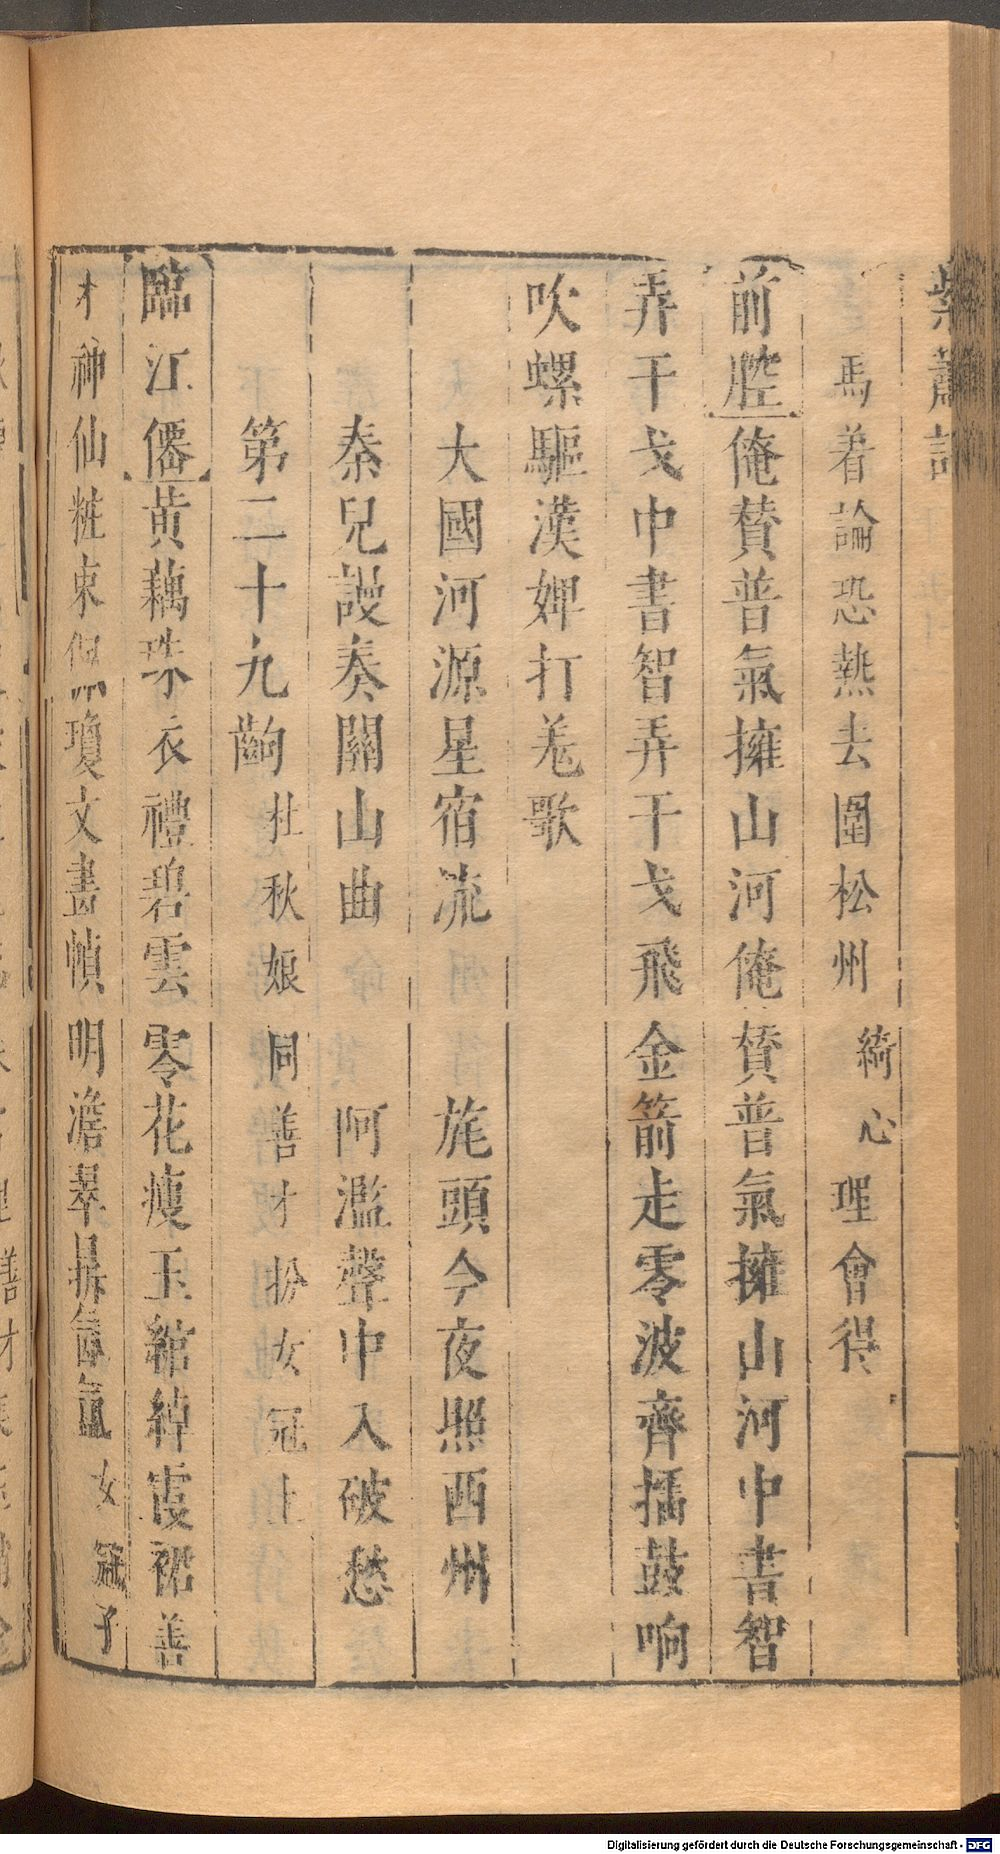 紫簫記
馬着論恐熱去圍松州 綺心理會得
前腔 俺贊普氣擁山河俺贊普氣擁山河中書智
弄干戈中書智弄干戈飛金箭走零波齊擂鼓响
吹螺驅漢婢打羗歌
大國河源星宿流 旄頭今夜照西州
秦兒謾奏關山曲 阿濫聲中入破愁
第二十九齣 杜秋娘同善才扮女冠上
臨江僊 黄藕珠衣禮碧雲零花瘦玉綰綽霞裙善
才神仙粧束佩瓊文畫幀明澹翠 氤氳女冠子
Digitalisierung gefördert durch die Deutsche Forschungsgemeinschaft - DFG